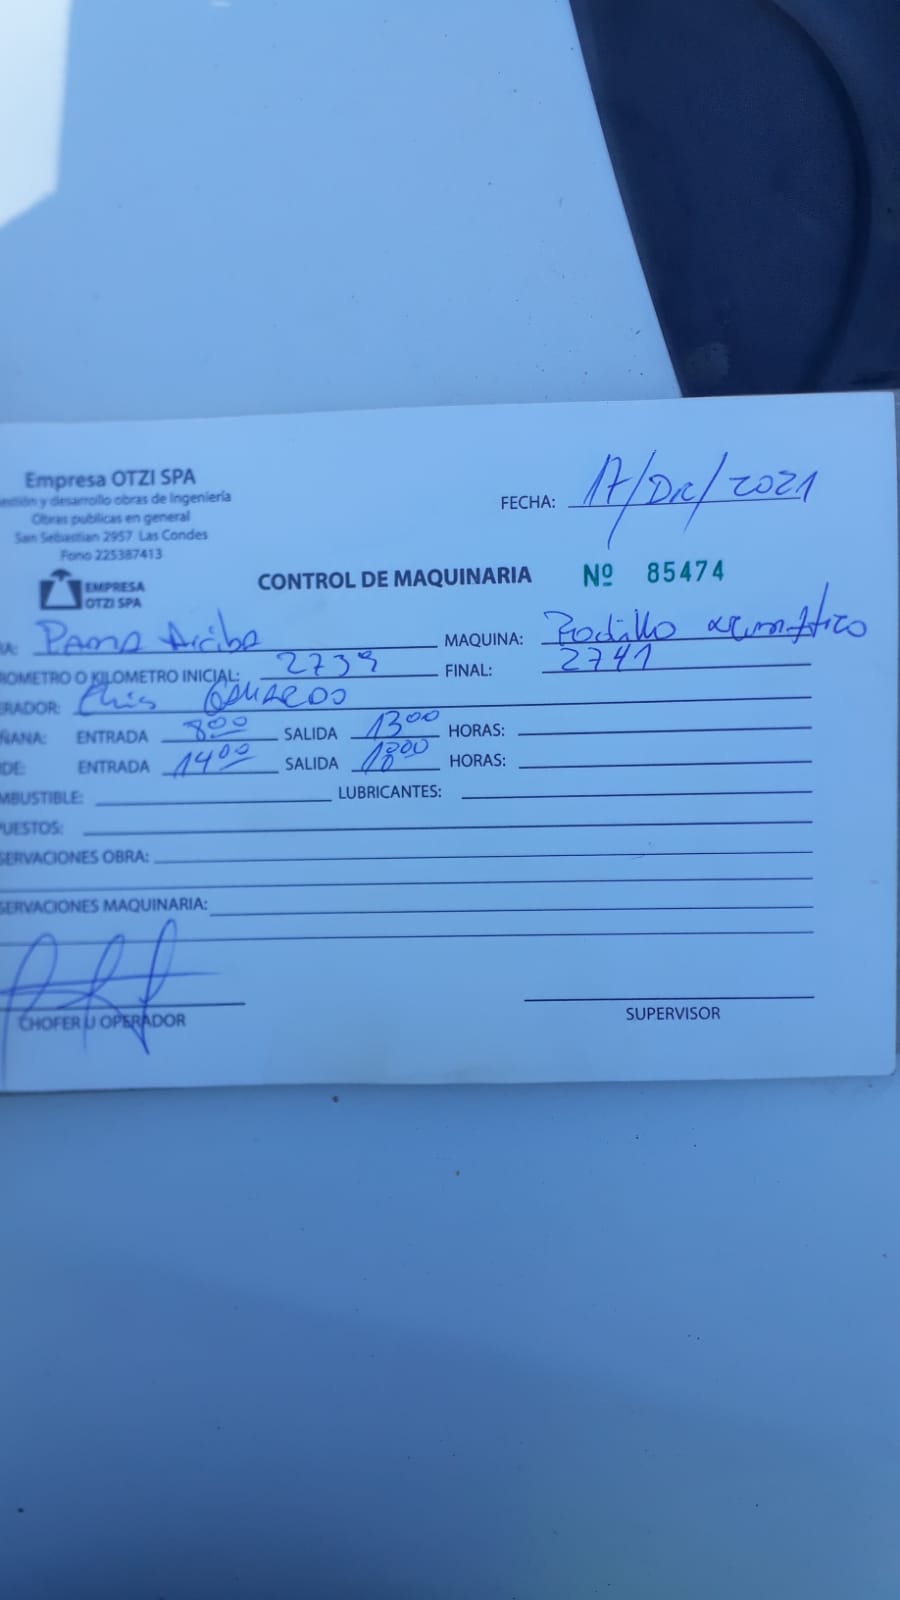 Empresa OTZI SPA
estión y desarrollo obras de Ingeniería
Obras publicas en general
San Sebastian 2957 Las Condes
Fono 225387413
EMPRESA
OTZI SPA
FECHA: 17/Dic/2021
CONTROL DE MAQUINARIA Nº 85474
RA: Pama Arriba MAQUINA: Rodillo
ROMETRO O KILOMETRO INICIAL: 2739 FINAL: 2741
ERADOR:
ÑANA: ENTRADA 800 SALIDA 1300 HORAS:
DE: ENTRADA 1400 SALIDA 1800 HORAS:
MBUSTIBLE: LUBRICANTES:
PUESTOS:
SERVACIONES OBRA:
SERVACIONES MAQUINARIA:
CHOFER U OPERADOR
SUPERVISOR